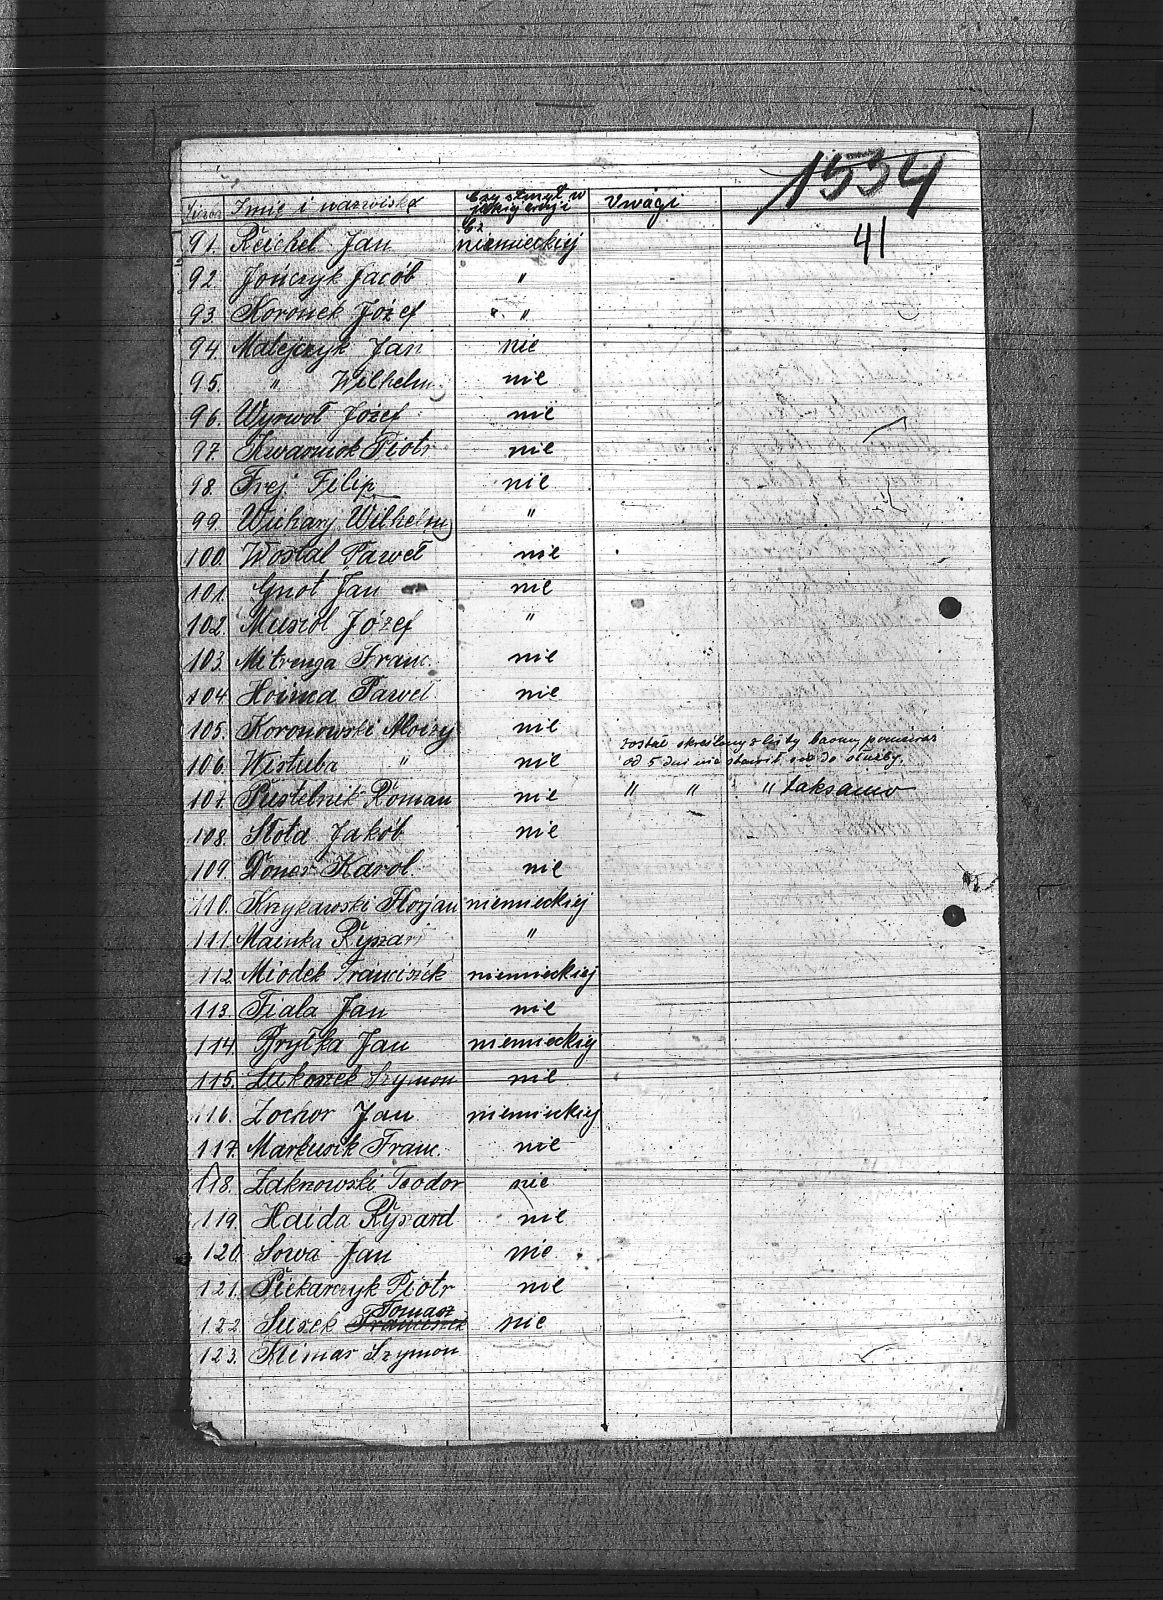 1534
41
Liczba Imię i nazwiska Czy służył w jakiej armji Uwagi
91. Reichel Jan niemieckiej
92. Jończyk Jacób "
93. Koronek Józef "
94. Matejczyk Jan nie
95. " Wilhelm nie
96. Wyrwoł Józef nie
97. Kwasniok Piotr nie
98. Frej Filip nie
99. Wichary Wilhelm "
100. Wostal Paweł nie
101. Gnot Jan nie
102. Musiol Józef "
103. Mitrenga Franc. nie
104. Hoinca Paweł nie
105. Koronowski Aloizy nie
106. Wistuba " nie został skreślony z listy baonu ponieważ
od 5 dni nie stawił się do służby.
107. Pustelnik Roman nie " " " taksamo
108. Stota Jakób nie
109. Doner Karol nie
110. Krzykawski Florjan niemieckiej
111. Mainka Ryszard "
112. Miodek Franciszek niemieckiej
113. Fiala Jan nie
114. Brytka Jan niemieckiej
115. Lukoszek Szymon nie
116. Zochor Jan niemieckiej
117. Markusik Franc. nie
118. Zaknowski Teodor nie
119. Haida Ryszard nie
120. Sowa Jan nie
121. Piekarczyk Piotr nie
122. Surek Franciszek Tomasz nie
123. Klimas Szymon